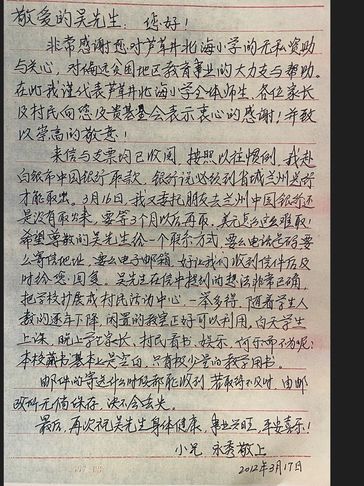 敬爱的吴先生：您好！
非常感谢您对芦草井北海小学的无私资助
与关心，对偏远贫困地区教育事业的大力支与帮助。
在此我谨代表芦草井北海小学全体师生、各位家长
及村民向您及贵基金会表示衷心的感谢！并致
以崇高的敬意！
来信与支票均已收阅，按照以往惯例，我赴
白银市中国银行取款，银行说必须到省城兰州总行
才能取出。3月16日，我又委托朋友去兰州中国银行还
是没有取出来，要等3个月以后再取，美元怎么这么难取！
希望尊敬的吴先生给一个联系方式，要么电话号码要
么寄信地址，要么电子邮箱，好让我们收到信件后及
时给您回复。吴先生在信中提到的想法非常正确，
把学校扩展成村民活动中心，一举多得，随着学生人
数的逐年下降，闲置的教室正好可以利用，白天学生
上课，晚上学生家长、村民看书、娱乐，何乐而不为呢；
本校藏书基本上是空白，只有极少量的教学用书。
邮件的寄送什么时段都能收到，若取待不及时，由邮
政所元倩保存，决不会丢失。
最后，再次祝吴先生身体健康，事业兴旺，平安喜乐！
小兄 永秀敬上
2012年3月17日